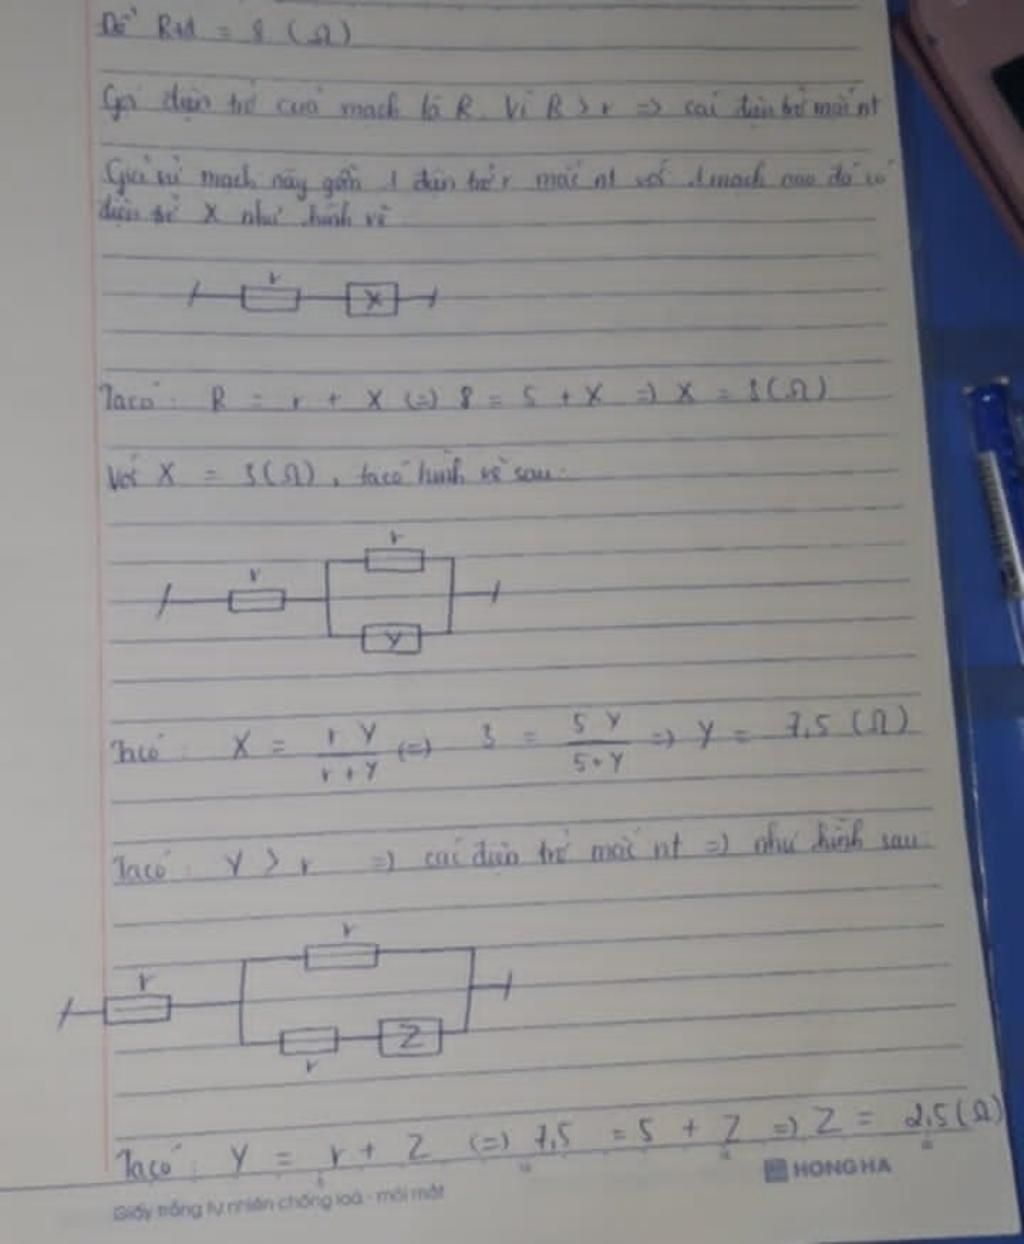 Để Rtđ = 8 (Ω)
Gọi điện trở của mạch là R. Vì R > r => các điện trở mắc nt
Giả sử mạch này gồm 1 điện trở r mắc nt với 1 mạch nào đó có
điện trở X như hình vẽ
r
X
Ta có: R = r + X (=) 8 = 5 + X => X = 3(Ω)
Với X = 3(Ω), ta có hình vẽ sau:
r
r
Y
Ta có: X = r Y / r + Y (=) 3 = 5 Y / 5 + Y => Y = 7,5 (Ω)
Ta có: Y > r => các điện trở mắc nt => như hình sau:
r
r
r
Z
Ta có: Y = r + Z (=) 7,5 = 5 + Z => Z = 2,5(Ω)
HONG HA
Giấy trắng tự nhiên chống loá - mỏi mắt